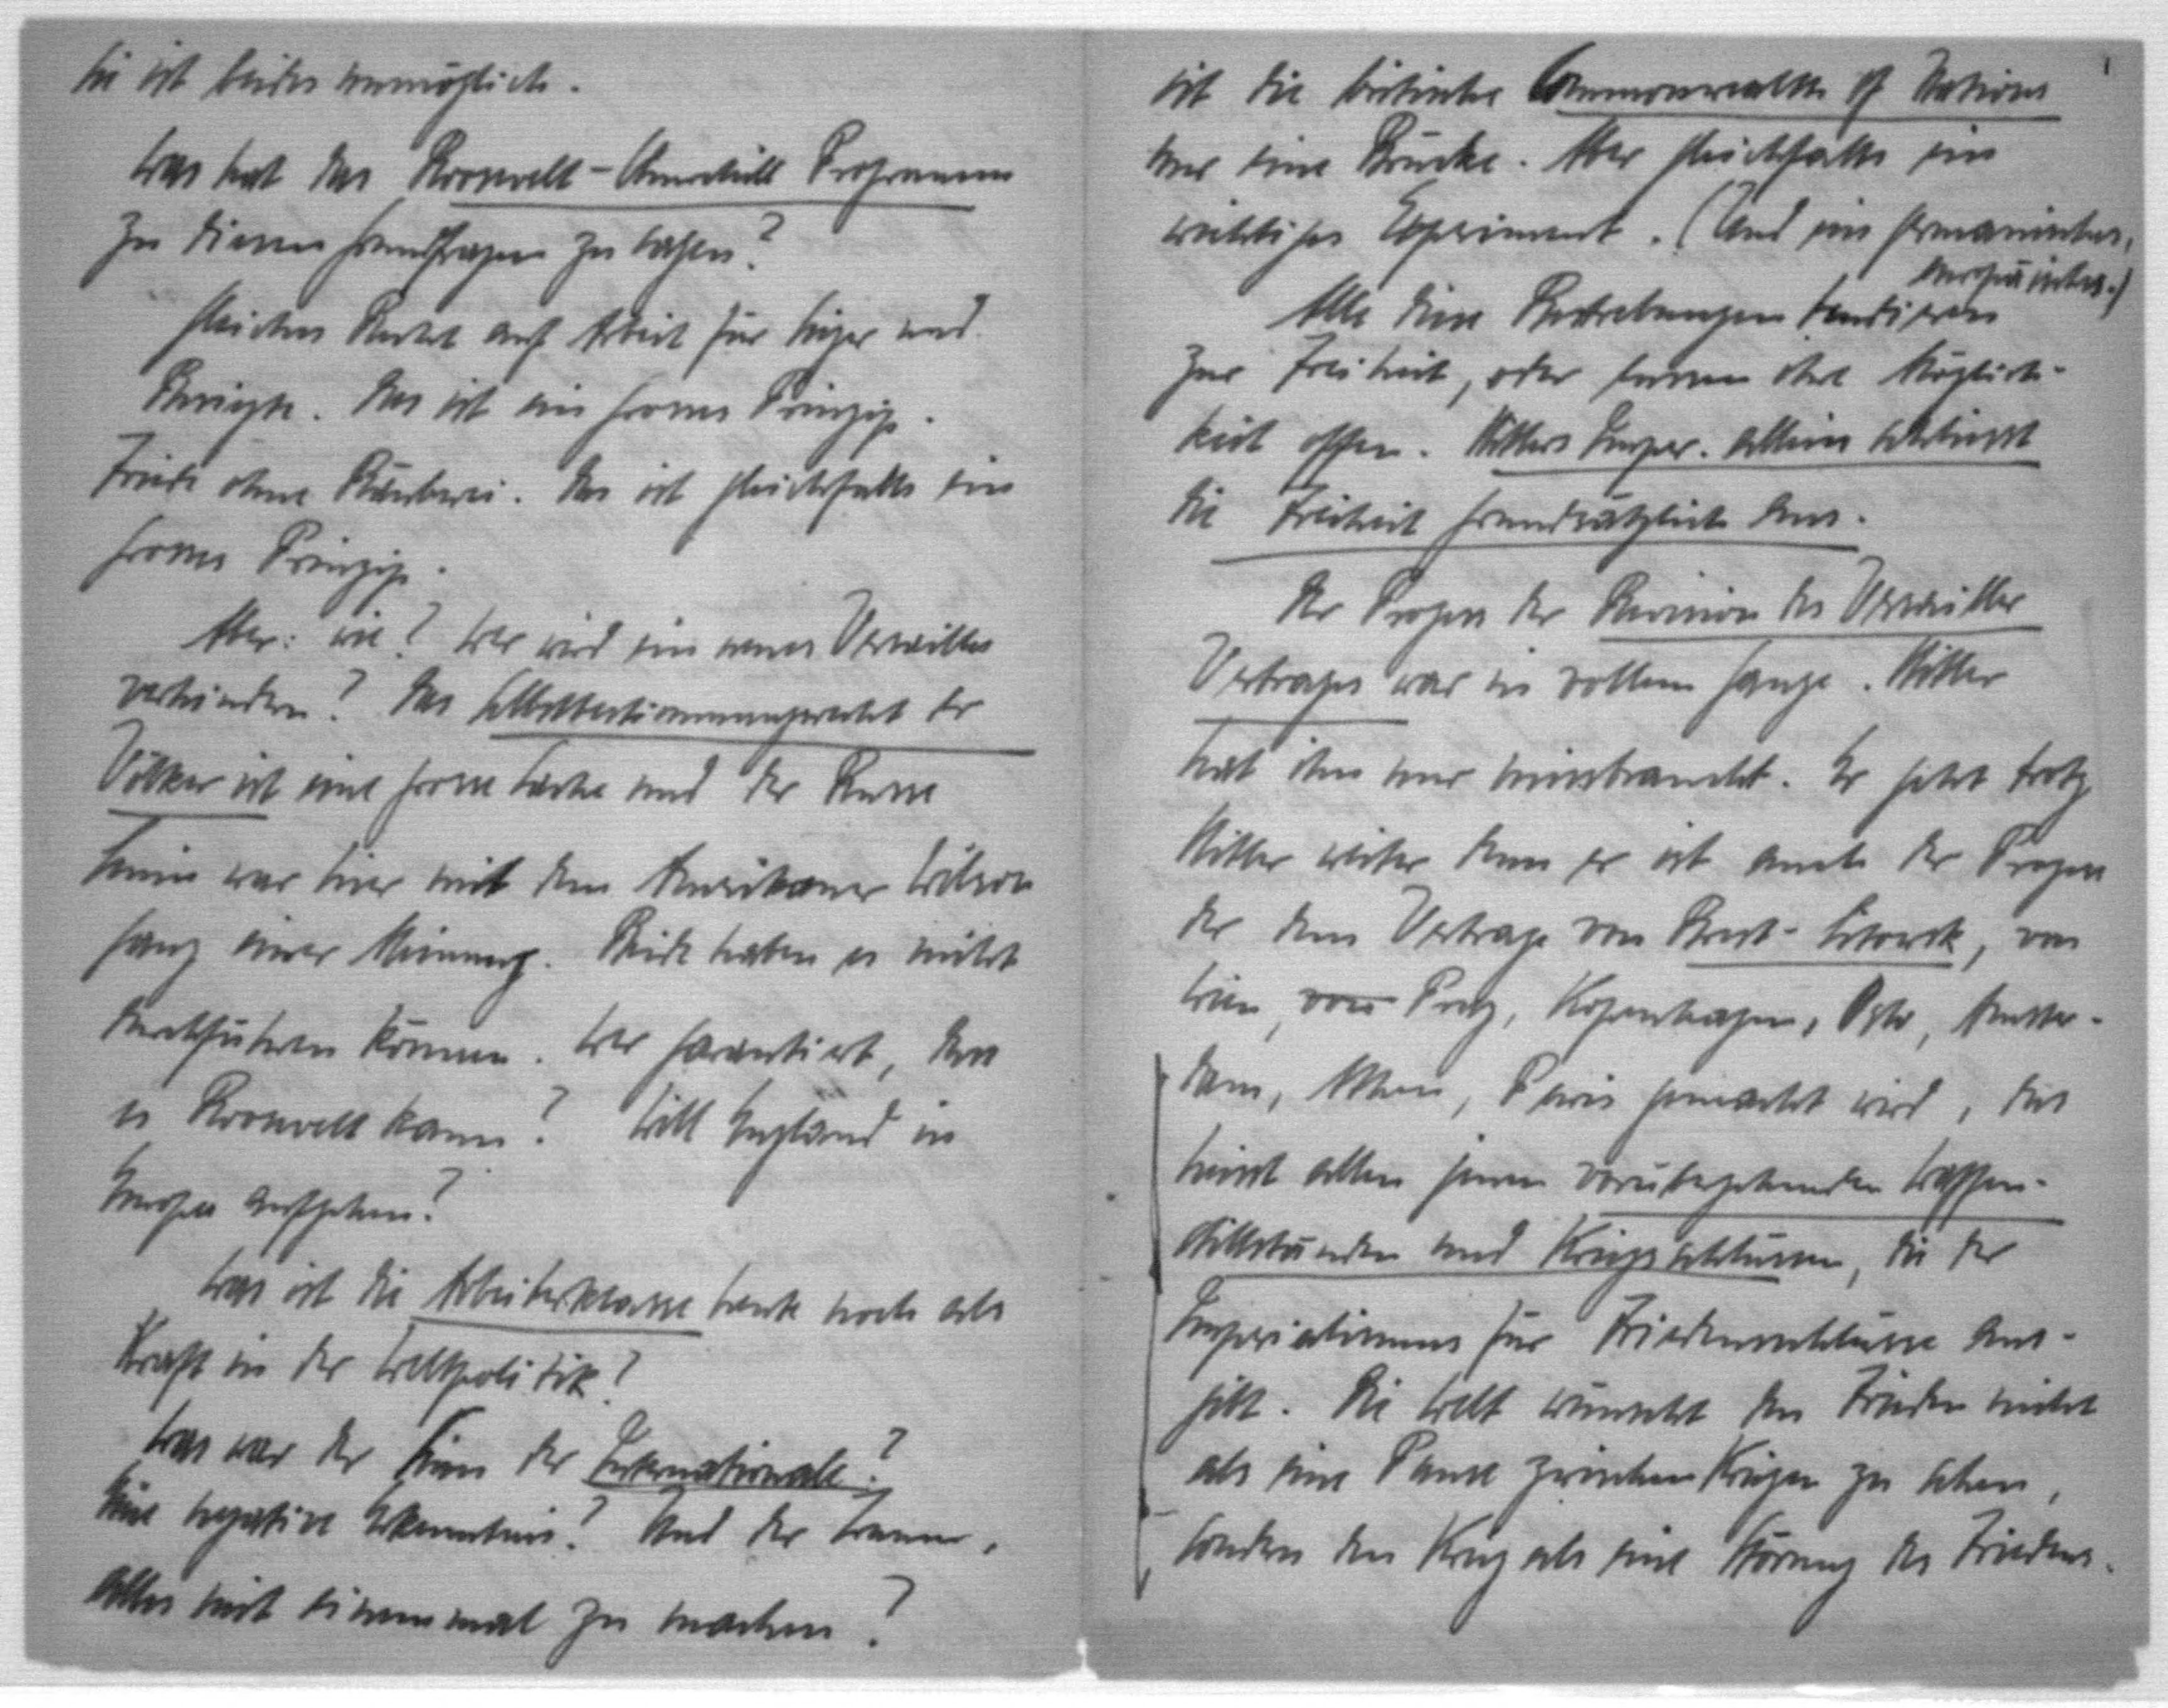 sie ist beides unmöglich.
Was hat das Roosevelt-Churchill Programm
zu diesen Grundfragen zu sagen?
Gleiches Recht auf Arbeit für Sieger und
Besiegte. Das ist ein grosses Prinzip.
Friede ohne Räuberei. Das ist gleichfalls ein
grosses Prinzip.
Aber: wie? Wer wird ein neues Versailles
verhindern? Das Selbstbestimmungsrecht der
Völker ist eine grosse Sache und der Russe
Lenin war hier mit dem Amerikaner Wilson
ganz einer Meinung. Beide haben es nicht
durchführen können. Wer garantiert, dass
es Roosevelt kann? Will England in
Europa aufgehen?
Was ist die Arbeiterklasse heute noch als
Kraft in der Weltpolitik?
Was war der Sinn der Internationale?
Eine negative Erkenntnis? Und der Traum,
alles mit einemmal zu machen?
ist die britische Commonwealth of Nations
nur eine Brücke. Aber gleichfalls ein
wichtiges Experiment. (Und ein germanisches,
europäisches.)
Alle diese Bestrebungen tendieren
zur Freiheit, oder lassen ihre Möglich-
keit offen. Hitlers Imper. allein schliesst
die Freiheit grundsätzlich aus.
Der Prozess der Revision des Versailler
Vertrages war in vollem Gange. Hitler
hat ihn nur missbraucht. Er geht trotz
Hitler weiter denn er ist auch der Prozess
der dem Vertrage von Brest-Litowsk, von
Wien, von Prag, Kopenhagen, Oslo, Amster-
dam, Athen, Paris gemacht wird, das
heisst allen jenen vorübergehenden Waffen-
stillständen und Kriegsschlüssen, die der
Imperialismus für Friedensschlüsse aus-
gibt. Die Welt wünscht den Frieden nicht
als eine Pause zwischen Kriegen zu sehen,
sondern den Krieg als eine Störung des Friedens.